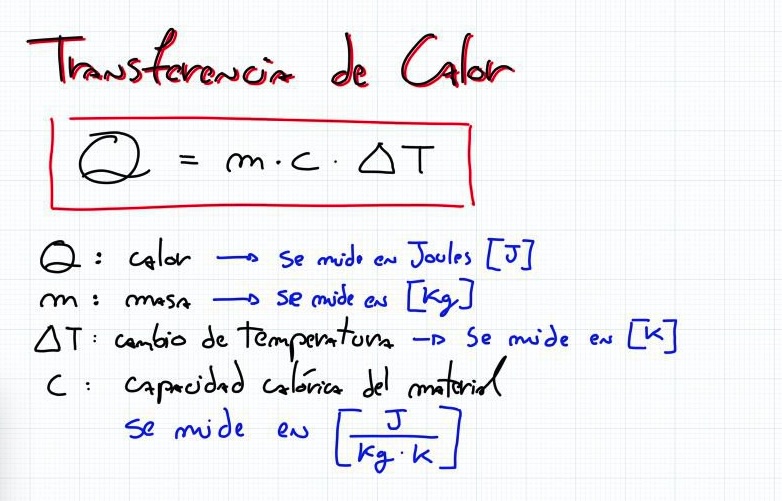 Transferencia de Calor
Q = m · c · ΔT
Q : calor → se mide en Joules [J]
m : masa → se mide en [Kg]
ΔT : cambio de temperatura → se mide en [K]
C : capacidad calórica del material
se mide en [J / Kg · K]